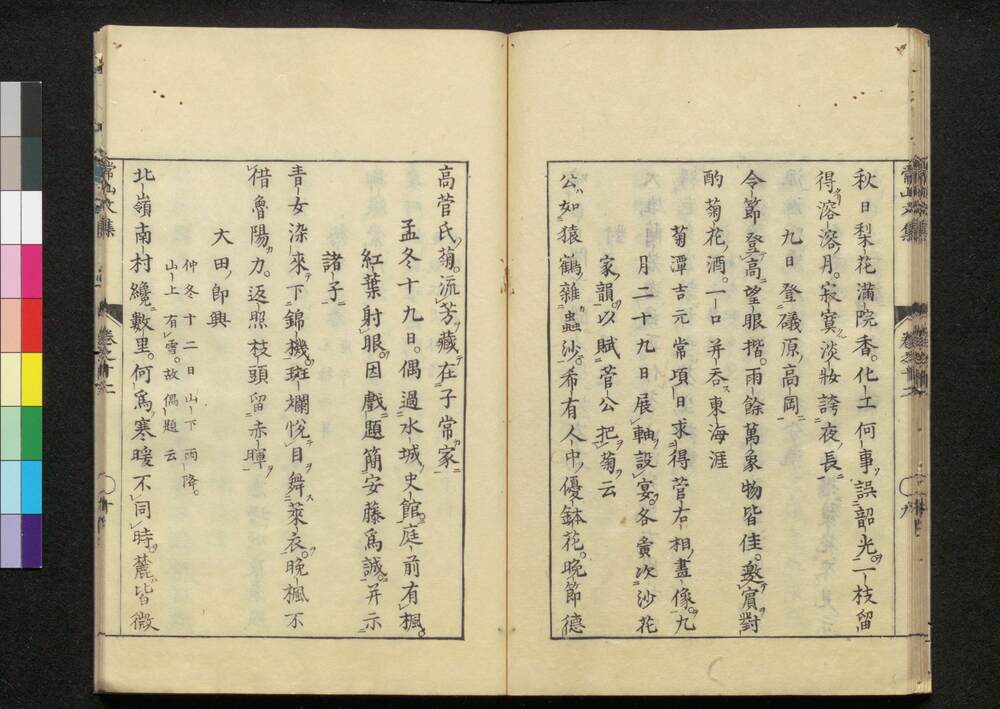 秋日梨花滿院香。化工何事誤韶光。一枝留
得溶溶月。寂寞淡妝誇夜長。
九日登磯原高岡
令節登高望眼揩。雨餘萬象物皆佳。邀賓對
酌菊花酒。一口并呑東海涯
菊潭吉元常頃日求得菅右相畫像。九
月二十九日展軸設宴。各賁次沙花
家韻以賦菅公把菊云
公如猿鶴雜蟲沙。希有人中優鉢花。晚節德
高菅氏菊。流芳藏在子常家
孟冬十九日。偶過水城史館。庭前有楓。
紅葉射眼。因戲題簡安藤爲誠。并示
諸子
青女染來下錦機。斑斕悅目舞萊衣。晚楓不
借魯陽力。返照枝頭留赤暉
大田即興
仲冬十二日山下雨降。
山上有雪。故偶題云
北嶺南村纔數里。何爲寒暖不同時。麓皆微
常山文集
卷之十二